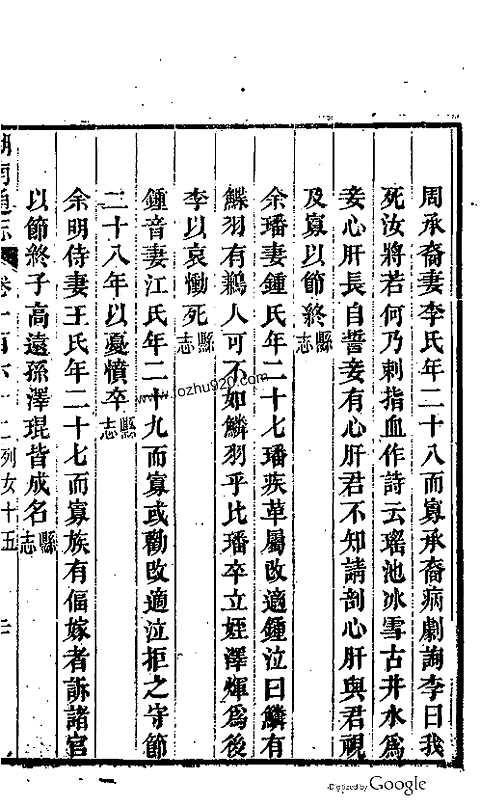 周承裔妻李氏年二十八而寡承裔病劇詢李曰我
死汝將若何乃刺指血作詩云瑤池冰雪古井水為
妾心肝長自誓妾有心肝君不知請剖心肝與君視
及寡以節終縣志
余璠妻鍾氏年二十七璠疾革屬改適鍾泣曰鱗有
鰈羽有鶼人可不如鱗羽乎比璠卒立姪澤輝為後
李以哀慟死縣志
鍾音妻江氏年二十九而寡或勸改適泣拒之守節
二十八年以憂憤卒縣志
余明侍妻王氏年二十七而寡族有偪嫁者訴諸官
以節終子高遠孫澤琨皆成名縣志
湖南通志 卷一百六十二列女十五
www.fozhu920.com
Digitized by Google